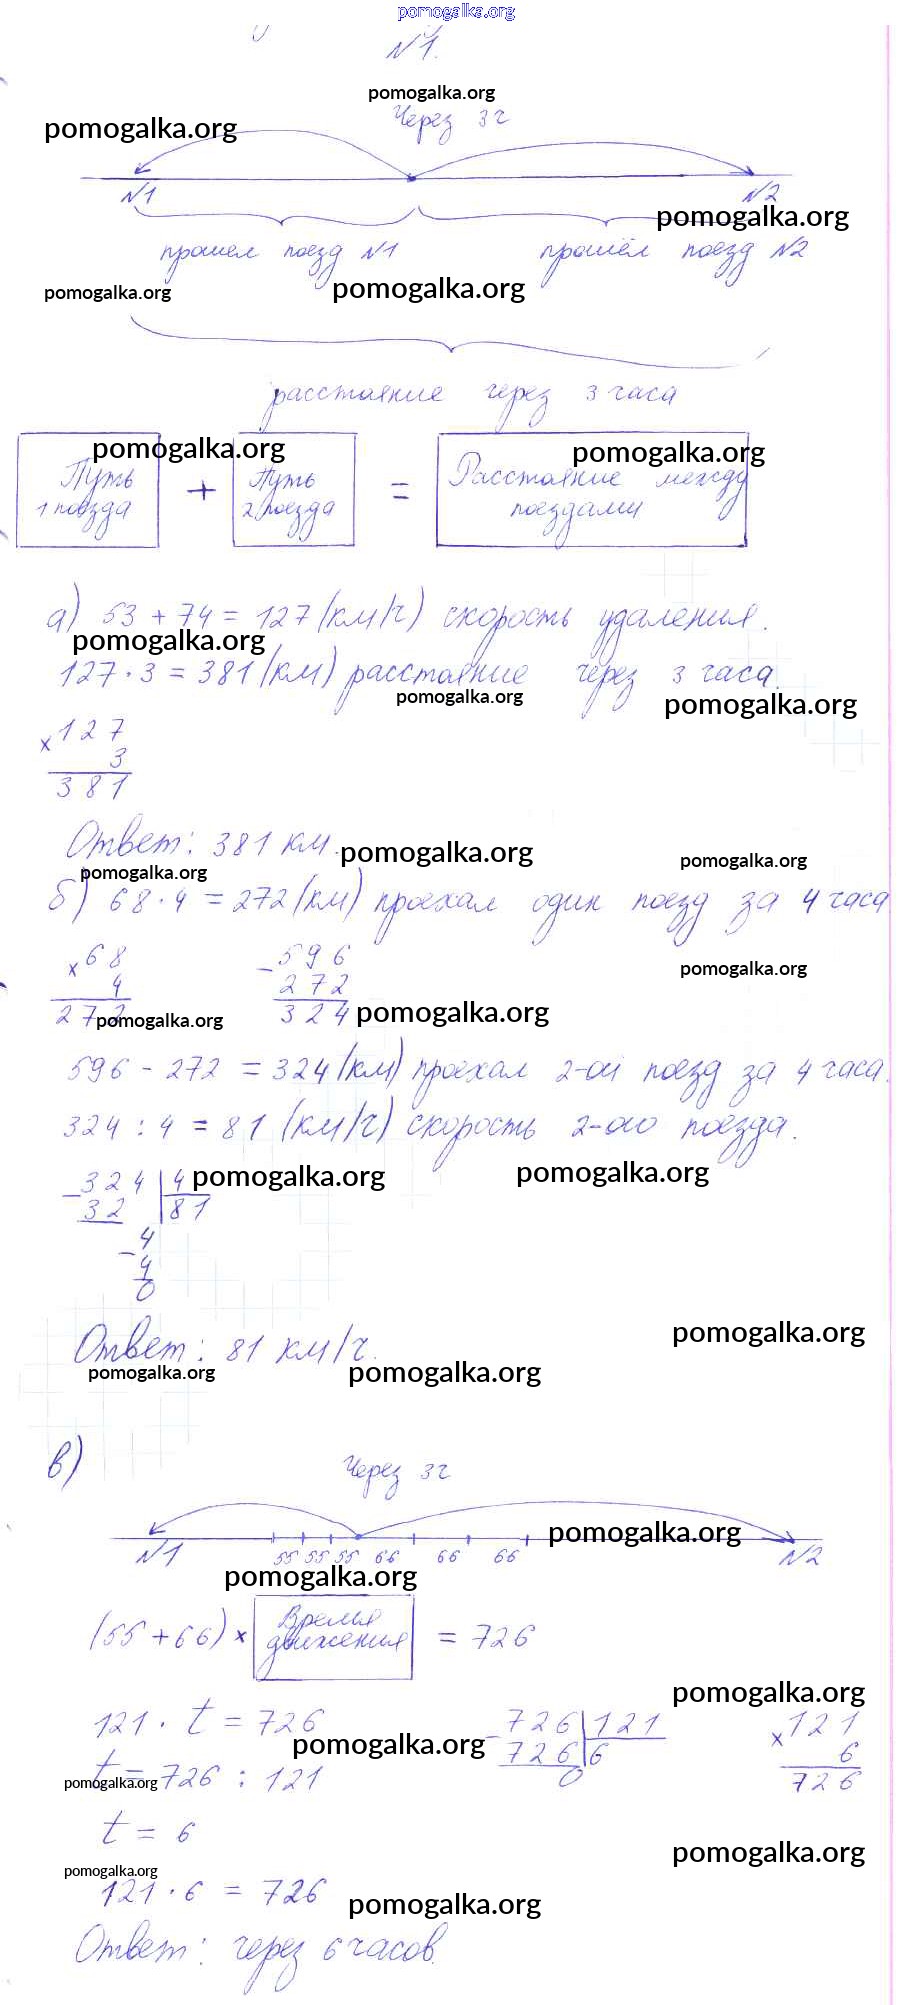 pomogalka.org
№1.
pomogalka.org
Через 3 ч
pomogalka.org
№1 №2
pomogalka.org
прошёл поезд №1 прошёл поезд №2
pomogalka.org pomogalka.org
расстояние через 3 часа
pomogalka.org pomogalka.org
Путь 1 поезда + Путь 2 поезда = Расстояние между поездами
а) 53 + 74 = 127 (км/ч) скорость удаления.
pomogalka.org
127 · 3 = 381 (км) расстояние через 3 часа.
pomogalka.org pomogalka.org
× 127
3
381
Ответ: 381 км.
pomogalka.org pomogalka.org
pomogalka.org
б) 68 · 4 = 272 (км) проехал один поезд за 4 часа
× 68 - 596
pomogalka.org
4 272
272 324
pomogalka.org pomogalka.org
596 - 272 = 324 (км) проехал 2-ой поезд за 4 часа.
324 : 4 = 81 (км/ч) скорость 2-ого поезда.
pomogalka.org pomogalka.org
- 324 | 4
32 | 81
- 4
4
0
pomogalka.org
Ответ: 81 км/ч.
pomogalka.org pomogalka.org
в)
Через 3 ч
pomogalka.org
№1 55 55 55 66 66 66 №2
pomogalka.org
(55 + 66) × Время движения = 726
pomogalka.org
121 · t = 726 - 726 | 121 × 121
pomogalka.org
726 | 6 6
t = 726 : 121 0 726
pomogalka.org
t = 6
pomogalka.org
pomogalka.org
121 · 6 = 726
pomogalka.org
Ответ: через 6 часов.